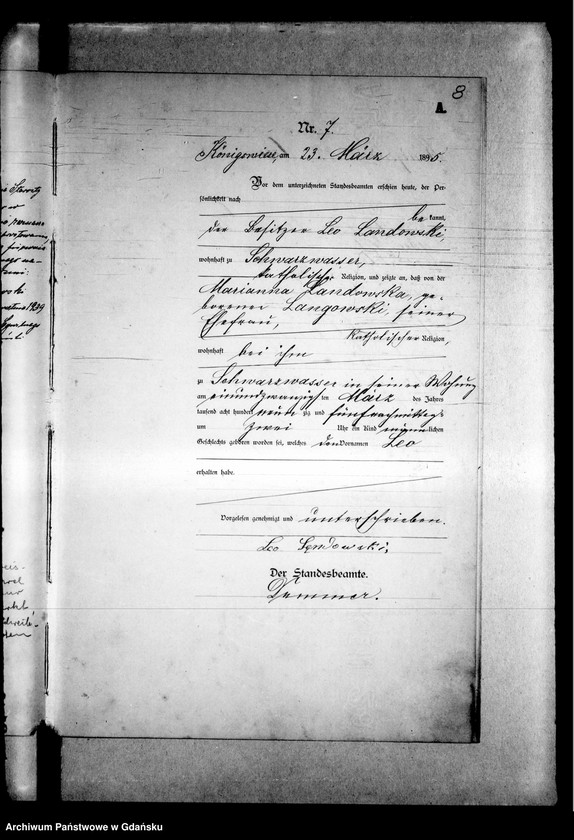 8
A.
Nr. 7.
Königswiese, am 23. März 1895.
Vor dem unterzeichneten Standesbeamten erschien heute, der Per-
sönlichkeit nach
bekannt,
der Besitzer Leo Landowski,
wohnhaft zu Schwarzwasser,
katholischer Religion, und zeigte an, daß von der
Marianna Landowska, ge-
borenen Langowski, seiner
Ehefrau,
katholischer Religion,
wohnhaft bei ihm
zu Schwarzwasser in seiner Wohnung
am einundzwanzigsten März des Jahres
tausend acht hundert neunzig und fünf nachmittags
um zwei Uhr ein Kind männlichen
Geschlechts geboren worden sei, welches den Vornamen Leo
erhalten habe.
Vorgelesen, genehmigt und unterschrieben.
Leo Landowski,
Der Standesbeamte.
Archiwum Państwowe w Gdańsku